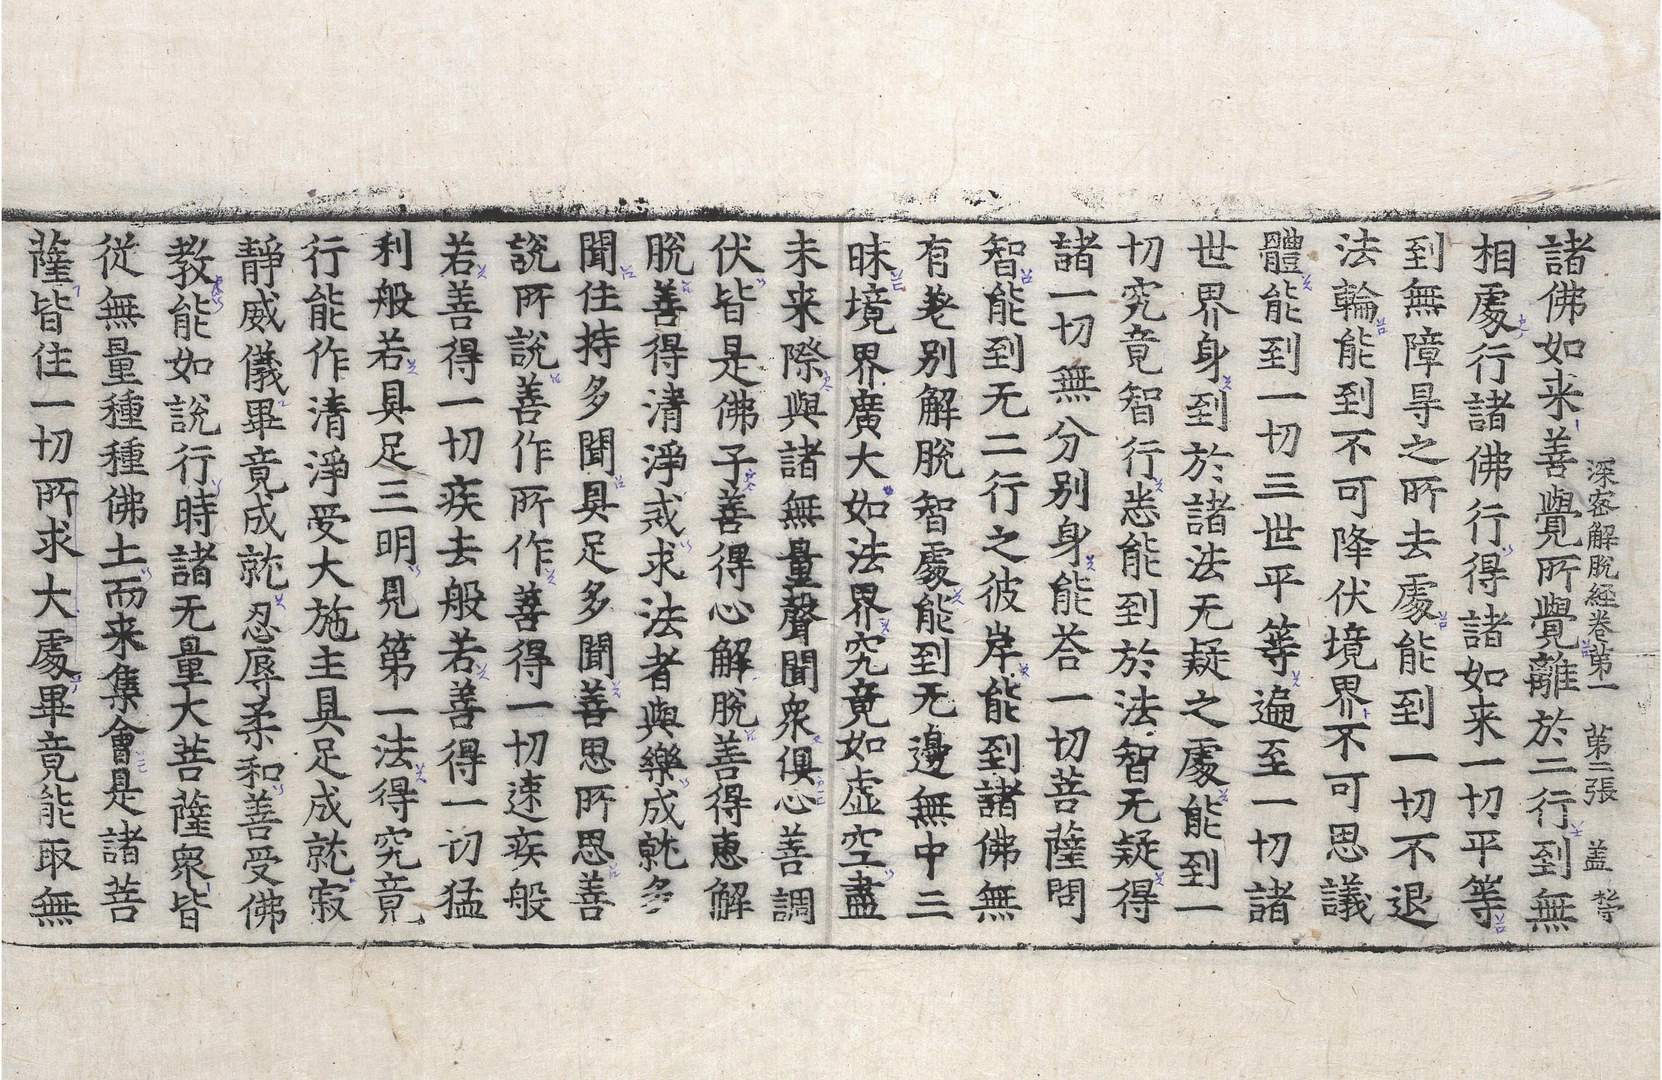 深密解脫經卷第一　第二張　盖
諸佛如来善覺所覺離於二行到無
相處行諸佛行得諸如来一切平等
到無障㝵之所去處能到一切不退
法輪能到不可降伏境界不可思議
體能到一切三世平等遍至一切諸
世界身到於諸法无疑之處能到一
切究竟智行悉能到於法智无疑得
諸一切無分別身能荅一切菩薩問
智能到无二行之彼岸能到諸佛無
有差別解脫智處能到无邊無中三
昧境界廣大如法界究竟如虛空盡
未来際與諸無量聲聞衆俱心善調
伏皆是佛子善得心解脫善得恵解
脫善得清淨戒求法者與樂成就多
聞住持多聞具足多聞善思所思善
說所說善作所作善得一切速疾般
若善得一切疾去般若善得一切猛
利般若具足三明見第一法得究竟
行能作清淨受大施主具足成就寂
靜威儀畢竟成就忍辱柔和善受佛
教能如說行時諸无量大菩薩衆皆
従無量種種佛土而来集會是諸菩
薩皆住一切所求大處畢竟能取無